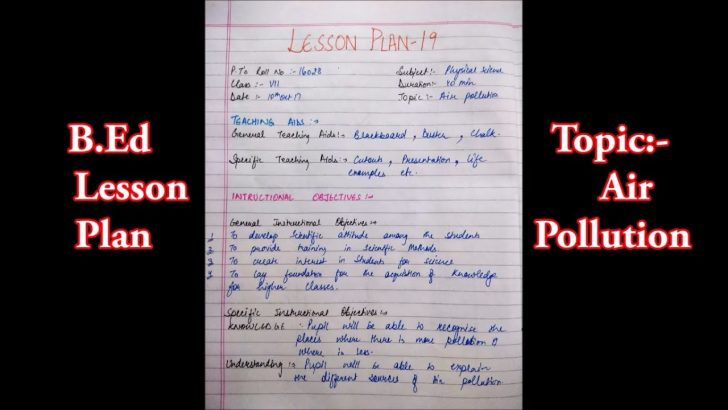 B.Ed
Lesson
Plan
LESSON PLAN-19
P.T's Roll No :- 16028
Subject:- Physical science
Class :- VII
Duration:- 40 min
Date :- 10th Oct 17
Topic :- Air pollution
TEACHING AIDS :→
General Teaching Aids:→ Blackboard, Duster, Chalk.
Specific Teaching Aids:→ Cutouts, Presentation, Life
examples etc.
INTRUCTIONAL OBJECTIVES:→
General Instructional Objectives:→
1 To develop Scientific attitude among the students
2 To provide training in scientific Methods.
3 To create interest in students for science
4 To lay foundation for the acquistion of knowledge
for higher classes.
Specific Instructional Objectives:→
KNOWLEDGE :- Pupil will be able to recognise the
places where there is more pollution &
where is less.
Understanding:- Pupil will be able to explain
the different sources of Air pollution.
Topic:-
Air
Pollution